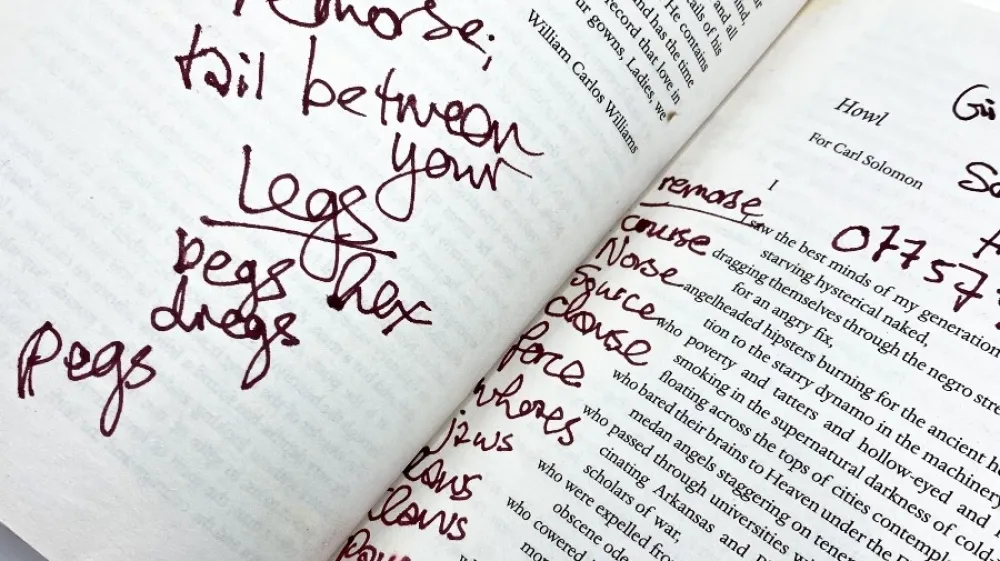 remorse;
tail between
your
Legs
begs hex
dregs
Pegs
and all
He contains
and has the time
record that love in
ur gowns, Ladies, we
William Carlos Williams
Howl
For Carl Solomon
I
remorse
course
Norse
Source
clause
force
whores
jaws
claws
07757
I saw the best minds of my generation
starving hysterical naked,
dragging themselves through the negro stre
for an angry fix,
angelheaded hipsters burning for the ancient he
tion to the starry dynamo in the machinery
who poverty and tatters and hollow-eyed and
smoking in the supernatural darkness of cold-
floating across the tops of cities contempl
who bared their brains to Heaven under the
medan angels staggering on tenem
who passed through universities w
cinating Arkansas and
scholars of war,
who were expelled fro
obscene ode
who cowered